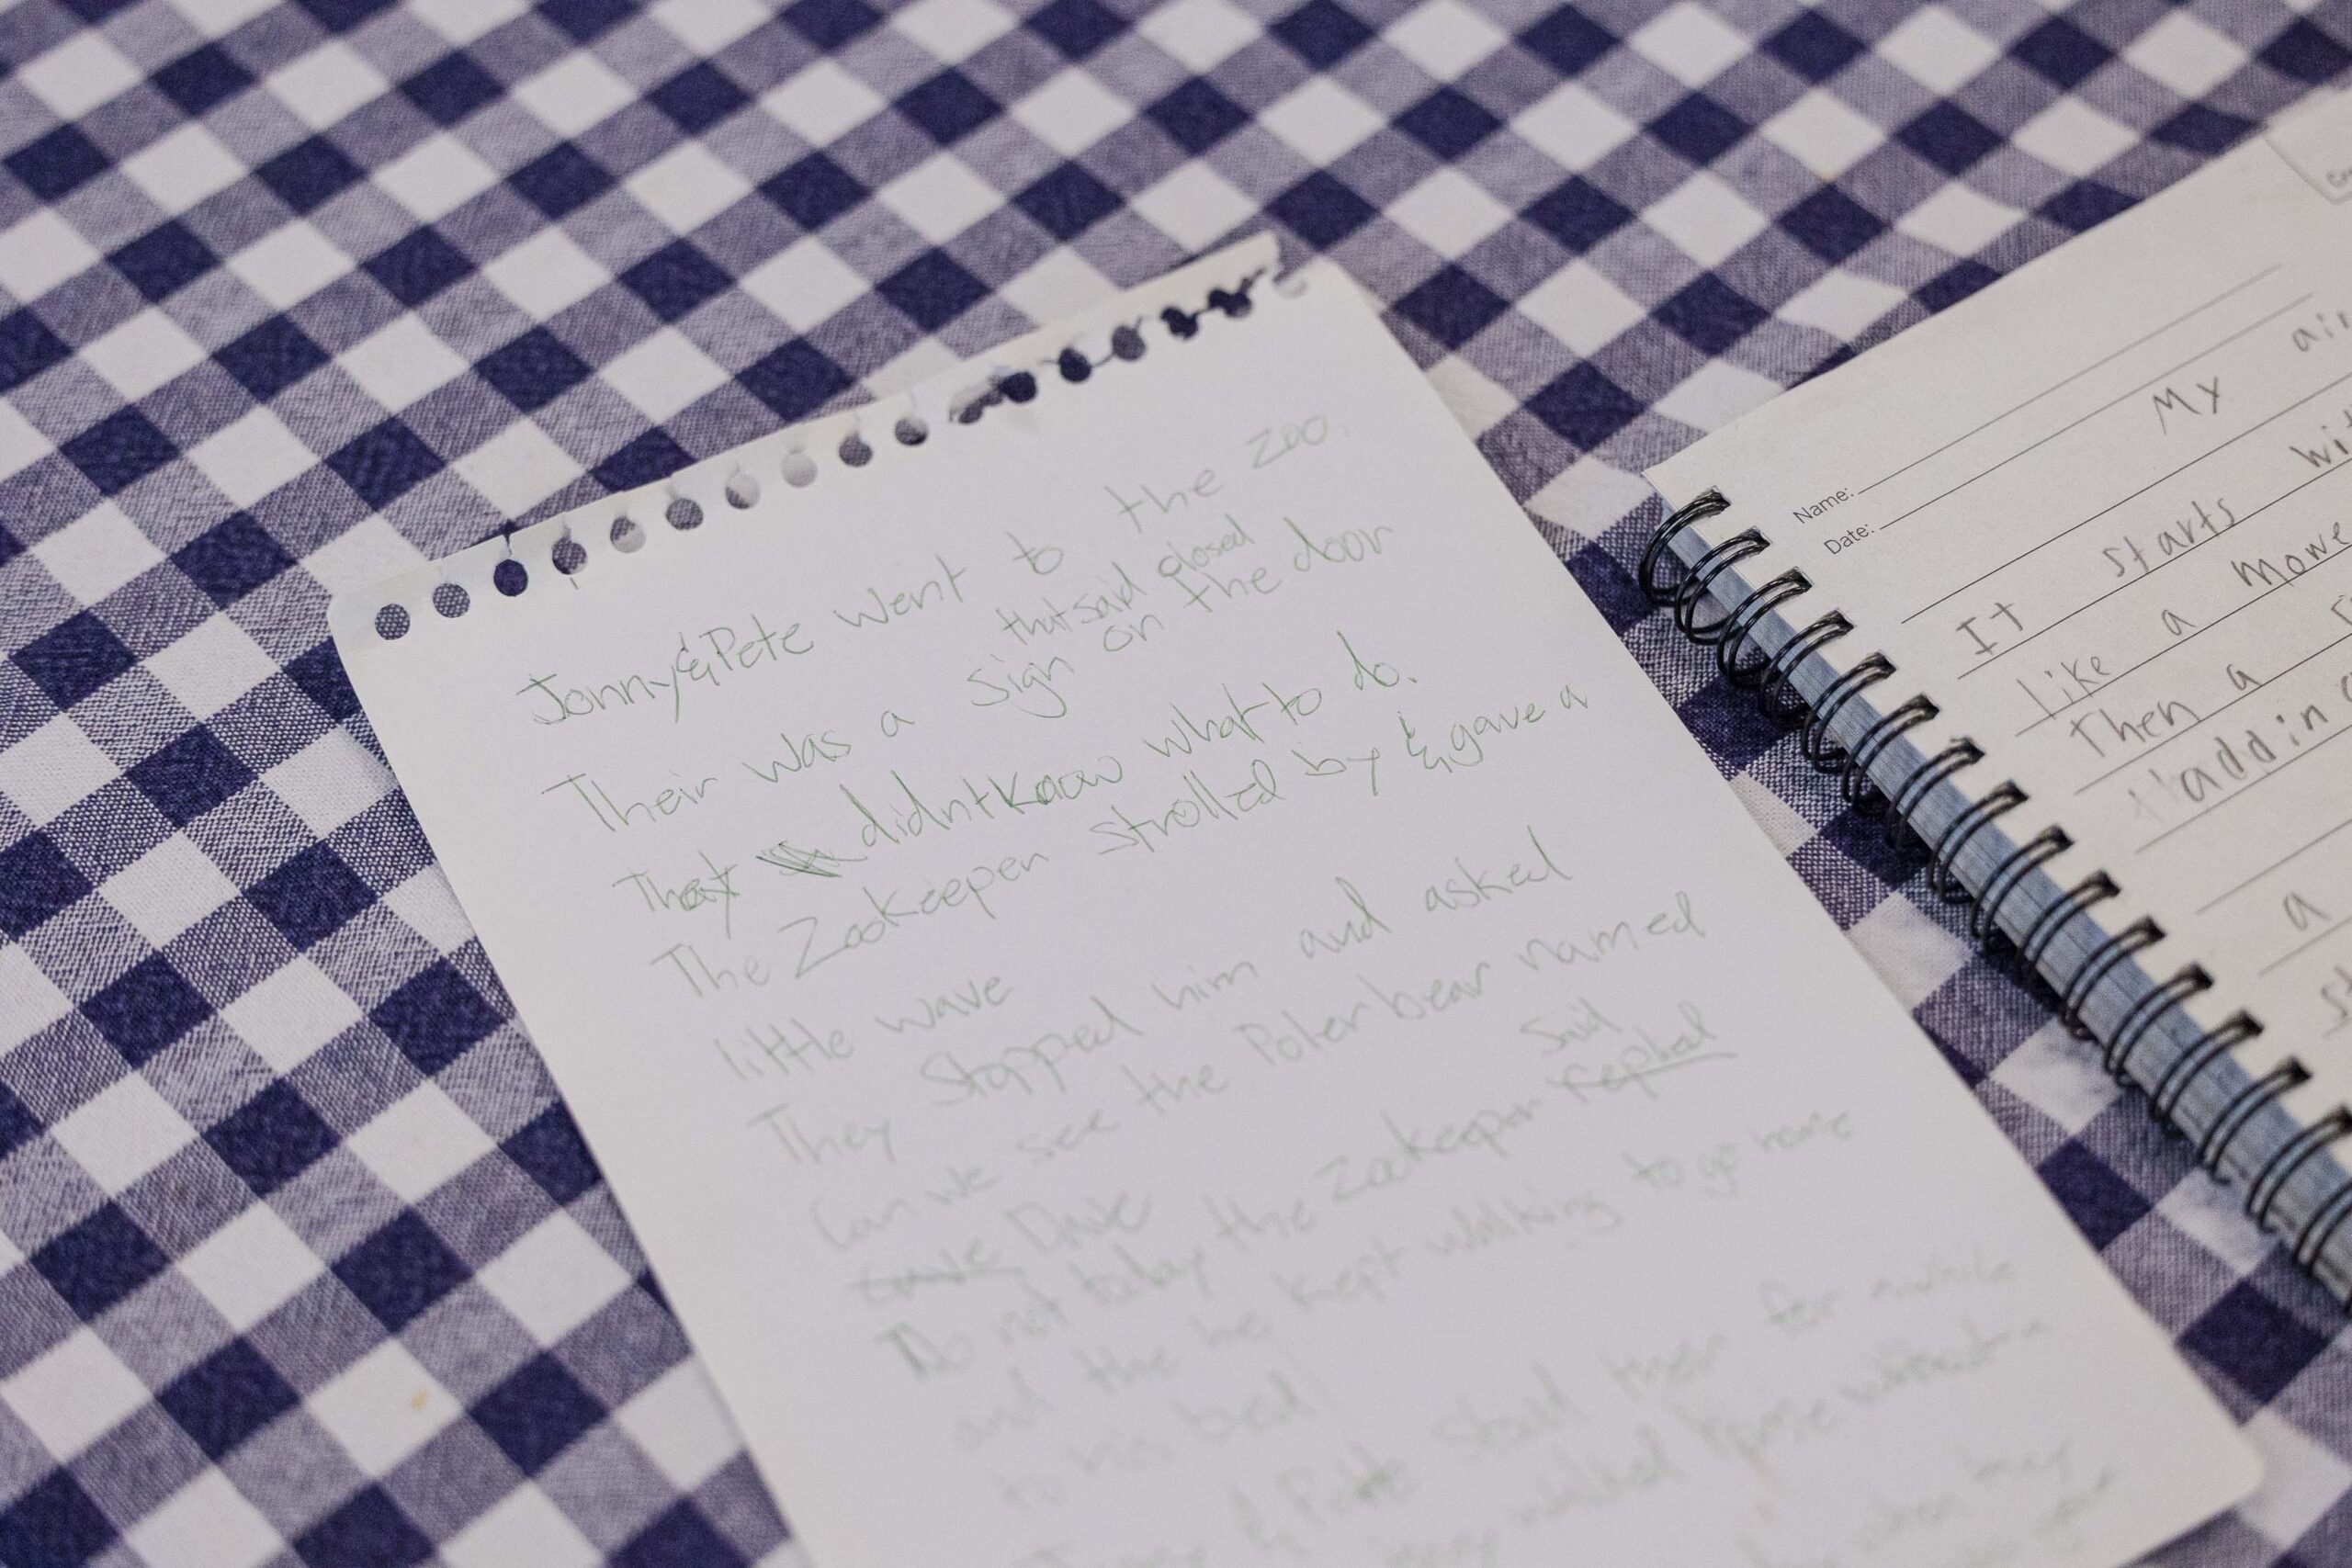 Jonny & Pete went to the zoo.
that said closed
Their was a sign on the door
They didnt know what to do.
The Zookeeper strolled by & gave a
little wave
They stopped him and asked
Can we see the Poler bear named
Dave
said
No not today the Zookeeper replied
and the he kept walking to go home
to his bed
& Pete stood ther for awhile
walked home without a
when they
Name:
Date:
My
It starts
like a Mowe
Then a
addin
a